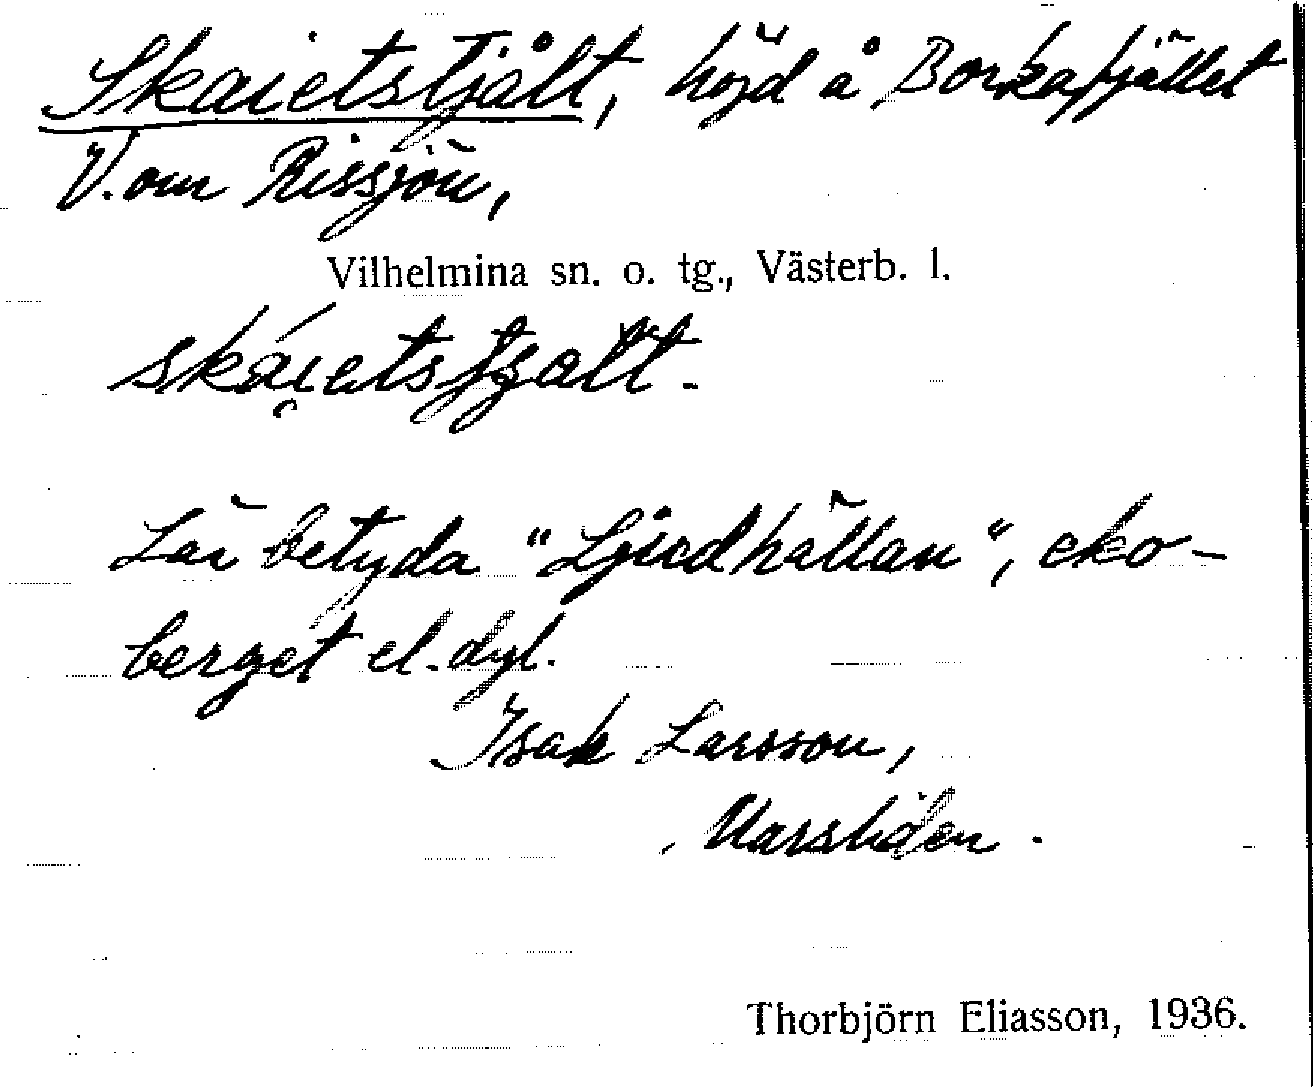 Skaietstjålt, höjd å Borkafjället
V. om Rissjön,
Vilhelmina sn. o. tg., Västerb. l.
skáietstjalt.
Lär betyda "Ljudhällan", eko-
berget el. dyl.
Isak Larsson,
Marsliden.
Thorbjörn Eliasson, 1936.